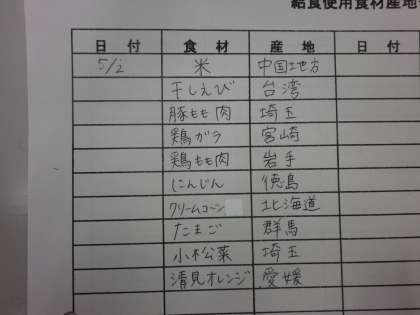 給食使用食材産地
日付 食材 産地 日付
5/2 米 中国地方
干しえび 台湾
豚もも肉 埼玉
鶏ガラ 宮崎
鶏もも肉 岩手
にんじん 徳島
クリームコーン 北海道
たまご 群馬
小松菜 埼玉
清見オレンジ 愛媛